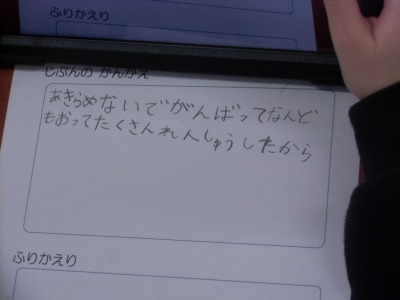 ふりかえり
じぶんの かんがえ
あきらめないでがんばってなんど
もおってたくさんれんしゅうしたから
ふりかえり